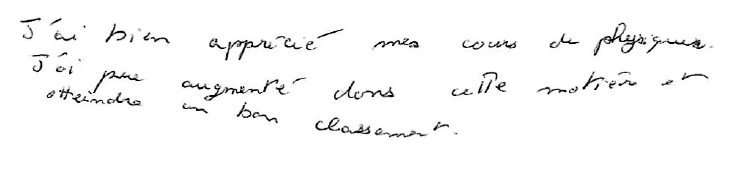 J'ai bien apprécié mes cours de physique.
J'ai pue augmenté dans cette matière et
atteindre un bon classement.